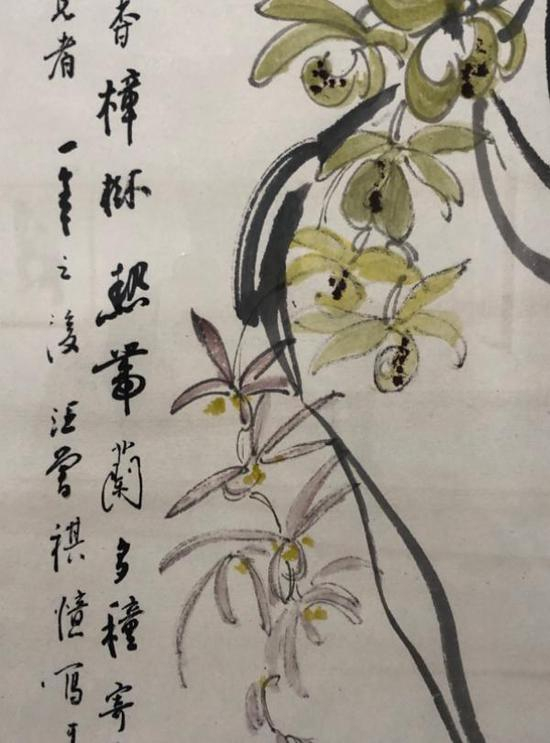 香樟樹熱帶蘭多種寄
見者一年之後汪曾祺憶寫于